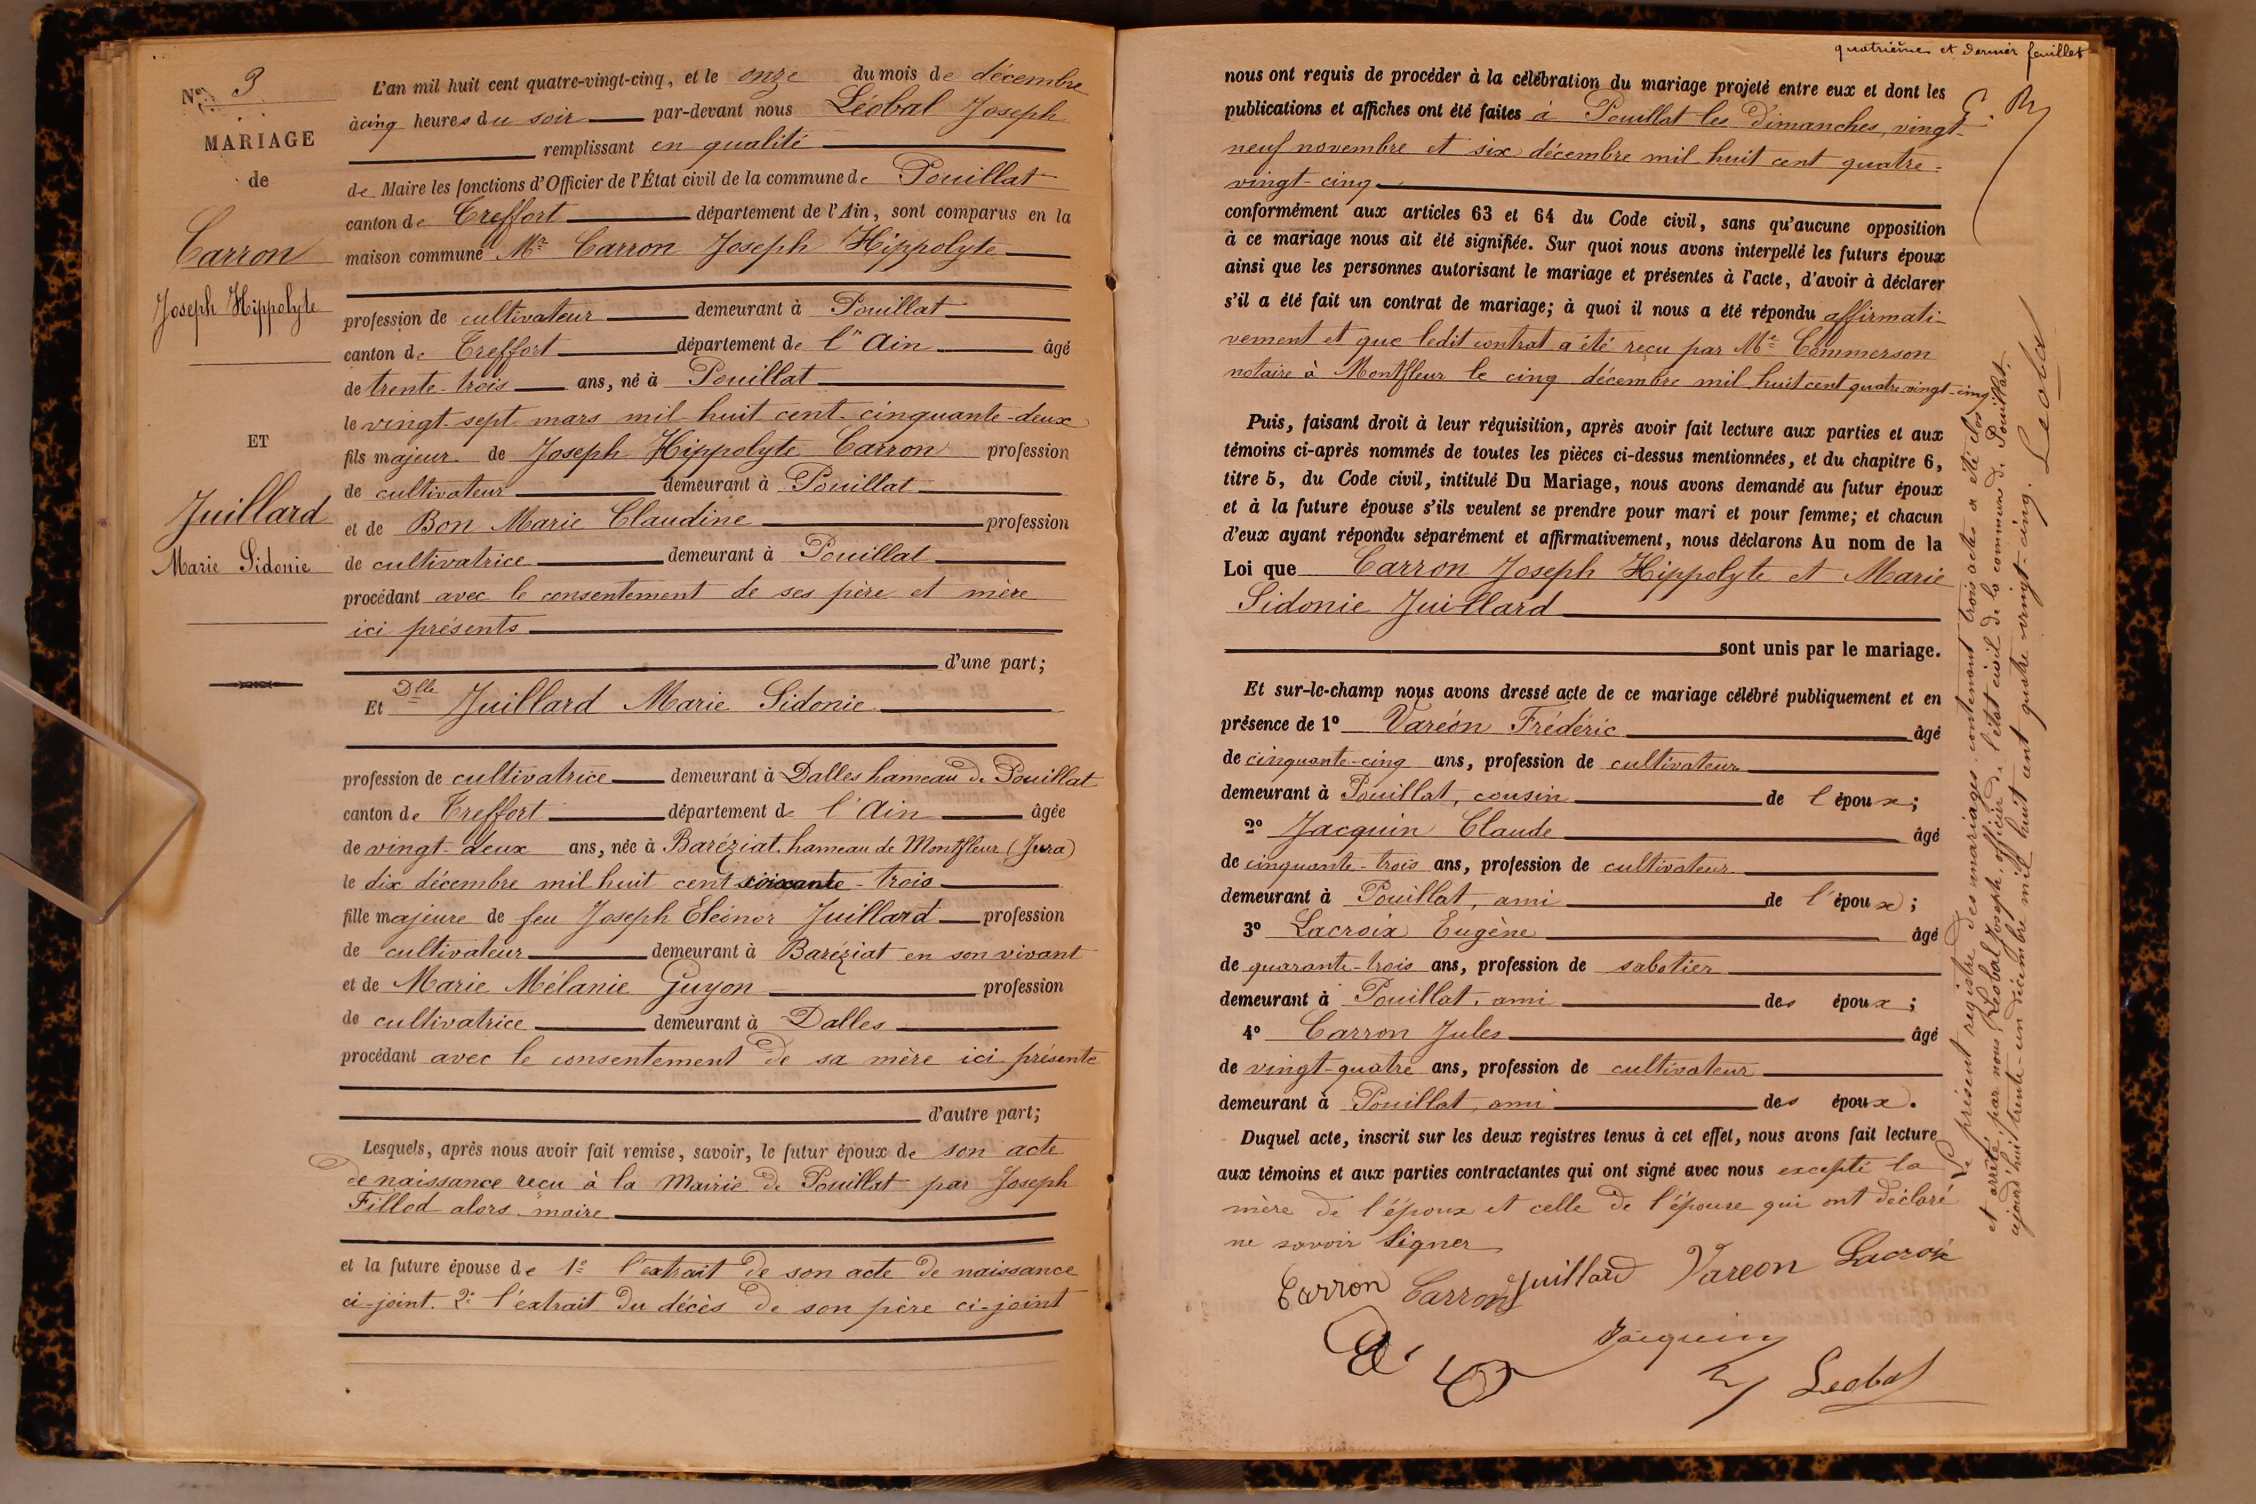 N° 3
MARIAGE
de
Carron
Joseph Hippolyte
ET
Juillard
Marie Sidonie
L'an mil huit cent quatre-vingt-cinq, et le onze du mois de décembre
à cinq heures du soir par-devant nous Léobal Joseph
remplissant en qualité
de Maire les fonctions d'Officier de l'État civil de la commune de Pouillat
canton de Treffort département de l'Ain, sont comparus en la
maison commune Mr Carron Joseph Hippolyte
profession de cultivateur demeurant à Pouillat
canton de Treffort département de l'Ain âgé
de trente-trois ans, né à Pouillat
le vingt-sept mars mil huit cent cinquante-deux
fils majeur de Joseph Hippolyte Carron profession
de cultivateur demeurant à Pouillat
et de Bon Marie Claudine profession
de cultivatrice demeurant à Pouillat
procédant avec le consentement de ses père et mère
ici présents
d'une part;
Et Dlle Juillard Marie Sidonie
profession de cultivatrice demeurant à Dalles hameau de Pouillat
canton de Treffort département de l'Ain âgée
de vingt-deux ans, née à Baréziat hameau de Montfleur (Jura)
le dix décembre mil huit cent soixante-trois
fille majeure de feu Joseph Eléonor Juillard profession
de cultivateur demeurant à Baréziat en son vivant
et de Marie Mélanie Guyon profession
de cultivatrice demeurant à Dalles
procédant avec le consentement de sa mère ici présente
d'autre part;
Lesquels, après nous avoir fait remise, savoir, le futur époux de son acte
de naissance reçu à la Mairie de Pouillat par Joseph
Fillod alors maire
et la future épouse de 1° l'extrait de son acte de naissance
ci-joint. 2° l'extrait du décès de son père ci-joint
quatrième et dernier feuillet
nous ont requis de procéder à la célébration du mariage projeté entre eux et dont les
publications et affiches ont été faites à Pouillat les dimanches, vingt-
neuf novembre et six décembre mil huit cent quatre-
vingt-cinq
conformément aux articles 63 et 64 du Code civil, sans qu'aucune opposition
à ce mariage nous ait été signifiée. Sur quoi nous avons interpellé les futurs époux
ainsi que les personnes autorisant le mariage et présentes à l'acte, d'avoir à déclarer
s'il a été fait un contrat de mariage; à quoi il nous a été répondu affirmati-
vement et que ledit contrat a été reçu par Me Commerson
notaire à Montfleur le cinq décembre mil huit cent quatre vingt-cinq
Puis, faisant droit à leur réquisition, après avoir fait lecture aux parties et aux
témoins ci-après nommés de toutes les pièces ci-dessus mentionnées, et du chapitre 6,
titre 5, du Code civil, intitulé Du Mariage, nous avons demandé au futur époux
et à la future épouse s'ils veulent se prendre pour mari et pour femme; et chacun
d'eux ayant répondu séparément et affirmativement, nous déclarons Au nom de la
Loi que Carron Joseph Hippolyte et Marie
Sidonie Juillard
sont unis par le mariage.
Et sur-le-champ nous avons dressé acte de ce mariage célébré publiquement et en
présence de 1° Varéon Frédéric âgé
de cinquante-cinq ans, profession de cultivateur
demeurant à Pouillat, cousin de l'époux;
2° Jacquin Claude âgé
de cinquante-trois ans, profession de cultivateur
demeurant à Pouillat, ami de l'époux;
3° Lacroix Eugène âgé
de quarante-trois ans, profession de sabotier
demeurant à Pouillat, ami des époux;
4° Carron Jules âgé
de vingt-quatre ans, profession de cultivateur
demeurant à Pouillat, ami des époux.
Duquel acte, inscrit sur les deux registres tenus à cet effet, nous avons fait lecture
aux témoins et aux parties contractantes qui ont signé avec nous excepté la
mère de l'époux et celle de l'épouse qui ont déclaré
ne savoir signer
Carron Carron Juillard Vareon Lacroix
Jacquin
Leobal
Le présent registre des mariages contenant trois actes a été clos
et arrêté par nous Léobal Joseph, officier de l'état civil de la commune de Pouillat,
aujourd'hui trente-un décembre mil huit cent quatre vingt-cinq. Leobal